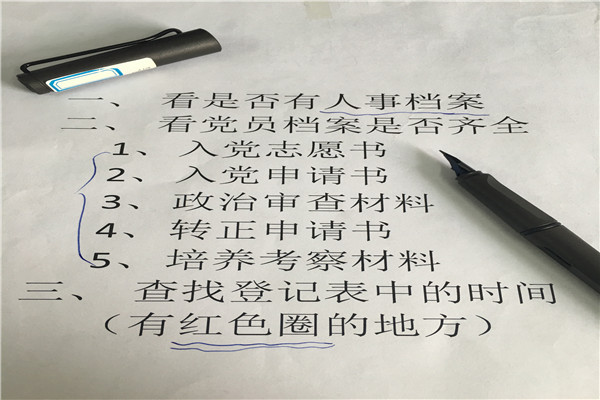 一、 看是否有人事档案
二、 看党员档案是否齐全
1、 入党志愿书
2、 入党申请书
3、 政治审查材料
4、 转正申请书
5、 培养考察材料
三、 查找登记表中的时间
（有红色圈的地方）